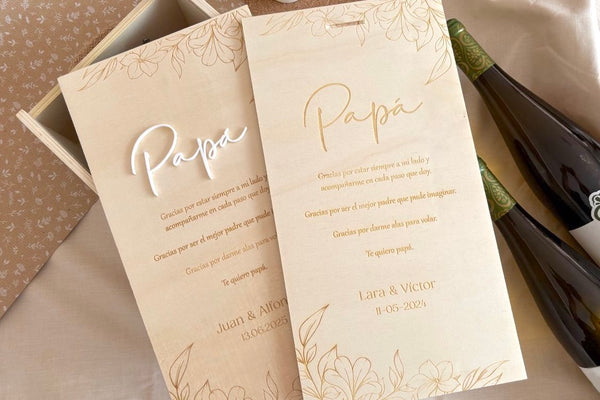 Papá
Gracias por estar siempre a mi lado y
acompañarme en cada paso que doy.
Gracias por ser el mejor padre que pude
Gracias por darme alas para volar.
Te quiero papá.
Juan & Alfon
13.06.2025
Papá
Gracias por estar siempre a mi lado y
acompañarme en cada paso que doy.
Gracias por ser el mejor padre que pude imaginar.
Gracias por darme alas para volar.
Te quiero papá.
Lara & Víctor
11-05-2024